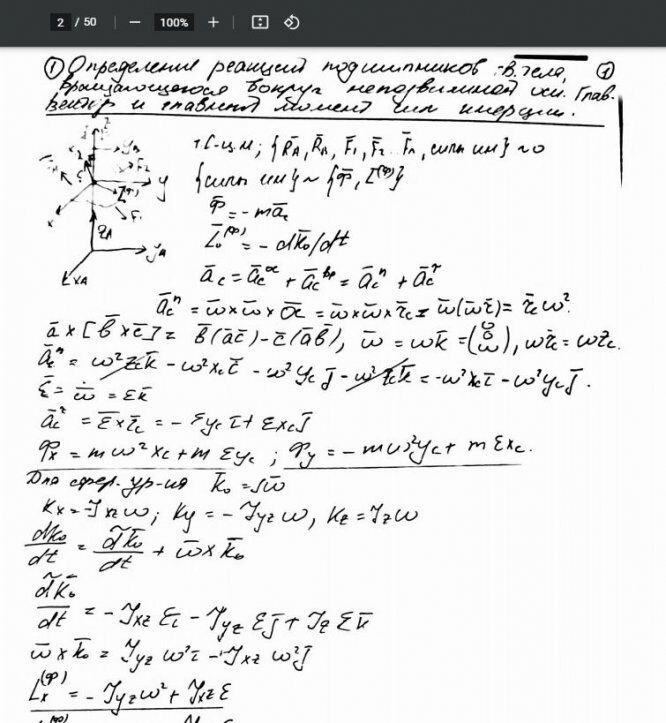 2 / 50 — 100% +
① Определение реакций подшипников В. тела, ①
вращающегося вокруг неподвижной оси. Глав.
вектор и главный момент сил инерции.
т. C-ц.м; {R̄A, R̄B, F̄1, F̄2.. F̄n, силы ин} ~ 0
{силы ин} ~ {Φ̄, L̄⁽ᶲ⁾}
Φ̄ = -mā_c
L̄₀⁽ᶲ⁾ = -dk̄₀/dt
ā_c = ā_c^oc + ā_c^вр = ā_c^n + ā_c^τ
ā_c^n = ω̄×ω̄×O̅C̅ = ω̄×ω̄×r̄_c = ω̄(ω̄r̄) = r̄_c ω².
ā × [b̄ × c̄] = b̄(āc̄) - c̄(āb̄), ω̄ = ωk̄ = (0 0 ω), ωr̄_c = ωz_c.
ā_c^n = ω²z_c k̄ - ω²x_c ī - ω²y_c j̄ - ω²z_c k̄ = -ω²x_c ī - ω²y_c j̄.
ε̄ = ω̄̇ = εk̄
ā_c^τ = ε̄×r̄_c = -εy_c ī + εx_c j̄
Φ_x = mω²x_c + mεy_c ; Φ_y = -mω²y_c + mεx_c.
Для ур-ия k̄₀ = Jω̄
K_x = -J_xz ω; K_y = -J_yz ω, K_z = J_z ω
dk̄₀/dt = d̃k̄₀/dt + ω̄×k̄₀
d̃k̄₀/dt = -J_xz ε ī - J_yz ε j̄ + J_z ε k̄
ω̄×k̄₀ = J_yz ω² ī - J_xz ω² j̄
L_x⁽ᶲ⁾ = -J_yz ω² + J_xz ε